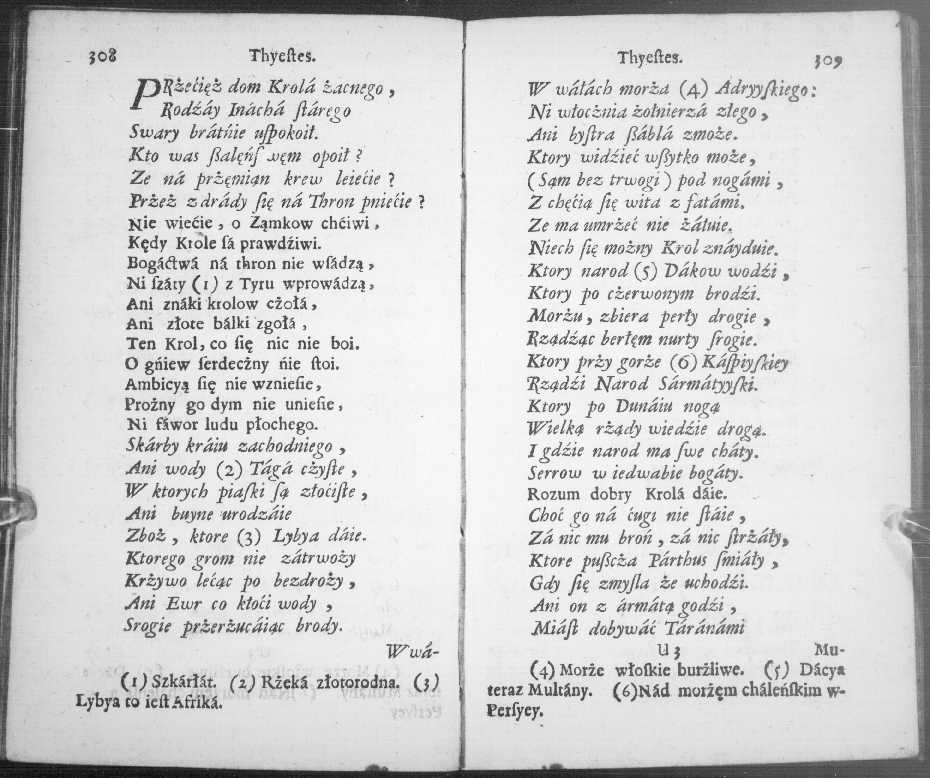 308 Thyeſtes.
PRżećięż dom Krolá żacnego,
Rodźáy Ináchá ſtárego
Swary brátńie uſpokoił.
Kto was ßalęńſ‍wem opoił?
Ze ná prżęmiąn krew leiećie?
Przeż zdrády ſię ná Thron pniećie?
Nie wiećie, o Ząmkow chćiwi,
Kędy Krole ſá prawdźiwi.
Bogáctwá ná thron nie wſádzą,
Ni ſzáty (1) z Tyru wprowádzą,
Ani znáki krolow cżołá,
Ani złote bálki zgołá,
Ten Krol, co ſię nic nie boi.
O gńiew ſerdecżny ńie ſtoi.
Ambicyą ſię nie wznieſie,
Prożny go dym nie unieſie,
Ni fáwor ludu płochego.
Skárby kráiu zachodniego,
Ani wody (2) Tágá cżyſte,
W ktorych piaſki ſą złoćiſte,
Ani buyne urodzáie
Zboż, ktore (3) Lybya dáie.
Ktorego grom nie zátrwoży
Krżywo lećąc po bezdroży,
Ani Ewr co kłoći wody,
Srogie prżerżucáiąc brody.
W wá-
(1) Szkárłát. (2) Rżeká złotorodna. (3)
Lybya to ieſt Afriká.
Thyeſtes. 309
W wáłách morża (4) Adryyſkiego:
Ni włocżnia żołnierzá złego,
Ani byſtra ßáblá zmoże.
Ktory widźieć wßytko może,
(Sąm bez trwogi) pod nogámi,
Z chęćią ſię wita z fatámi.
Ze ma umrżeć nie żáłuie.
Niech ſię możny Krol znáyduie.
Ktory narod (5) Dákow wodźi,
Ktory po cżerwonym brodźi.
Morżu, zbiera perły drogie,
Rządźąc berłęm nurty ſrogie.
Ktory prży gorże (6) Káſpiyſkiey
Rządźi Narod Sármátyyſki.
Ktory po Dunáiu nogą
Wielką rżądy wiedźie drogą.
I gdźie narod ma ſwe cháty.
Serrow w iedwabie bogáty.
Rozum dobry Krolá dáie.
Choć go ná ćugi nie ſtáie,
Zá nic mu broń, zá nic ſtrżáły,
Ktore pußcża Párthus ſmiáły,
Gdy ſię zmyſla że uchodźi.
Ani on z ármátą godźi,
Miáſt dobywáć Táránámi
U 3 Mu-
(4) Morże włoſkie burżliwe. (5) Dácya
teraz Multány. (6) Nád morżęm cháleńſkim w-
Perſyey.